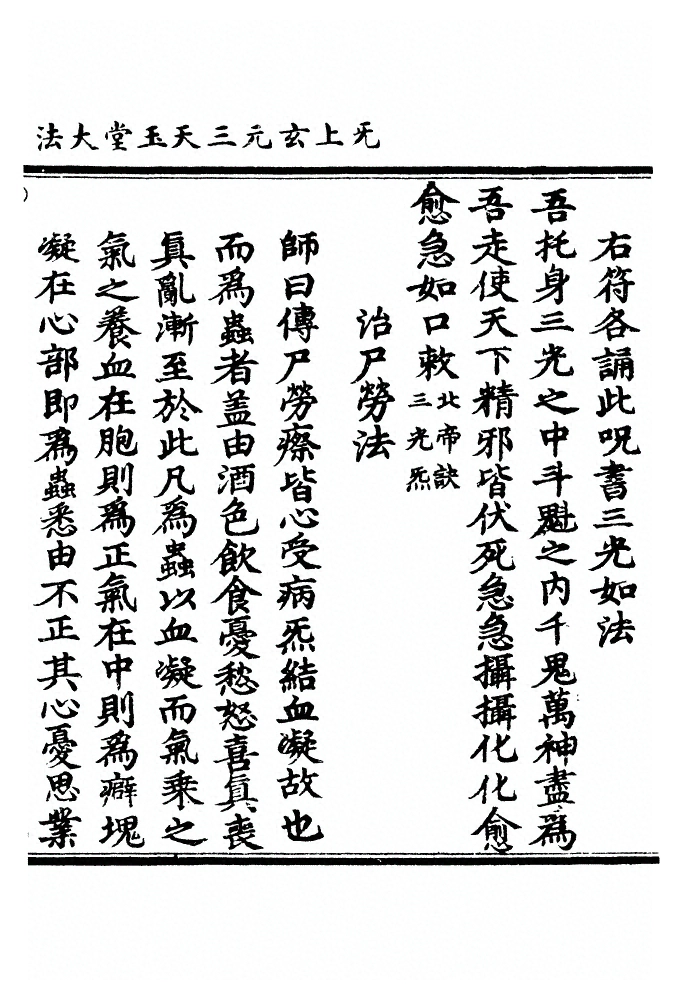 法大堂玉天三元玄上旡
右符各誦此呪書三光如法
吾托身三光之中斗魁之内千鬼萬神盡為
吾走使天下精邪皆伏死急急攝攝化化愈
愈急如口敕北帝訣三光炁
治尸勞法
師曰傳尸勞瘵皆心受病炁結血凝故也
而為蟲者盖由酒色飲食憂愁怒喜真喪
真亂漸至於此凡為蟲以血凝而氣乗之
氣之養血在胞則為正氣在中則為癖塊
凝在心部即為蟲悉由不正其心憂思業